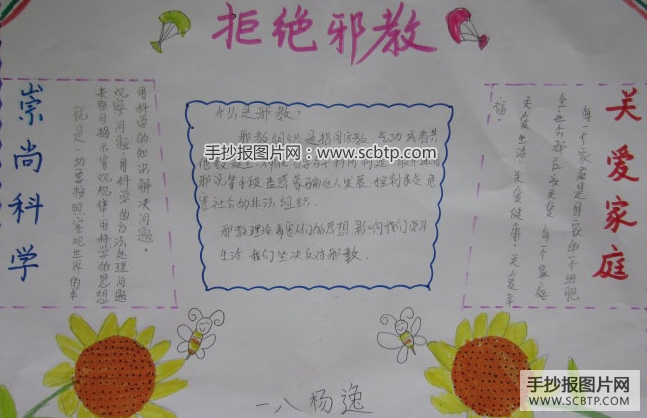 拒绝邪教
崇尚科学
就是一切要按照客观世界的本
来面目揭示客观规律用科学的思想
观察问题用科学的方法处理问题
用科学的知识解决问题。
什么是邪教?
邪教组织是指冒用宗教、气功或者其
手抄报图片网:
www.scbtp.com
邪说等手段蛊惑蒙骗他人发展、控制成员危
害社会的非法组织.
邪教理论毒害人们的思想影响我们的
生活我们坚决反对邪教.
关爱家庭
每一个家庭是国家的一个细胞
全世界都应该关爱每一个家庭
关爱生活,关爱健康,关爱幸
福。
一八杨逸
手抄报图片网
WWW.SCBTP.COM